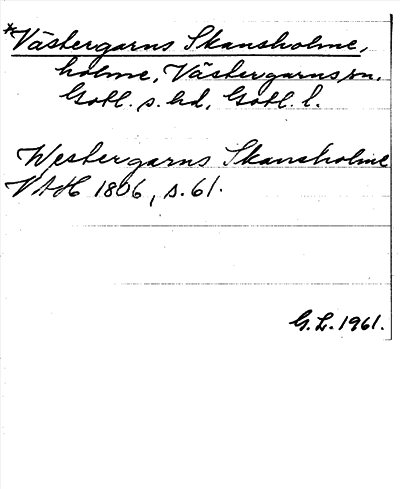 *Västergarns Skansholme,
holme, Västergarns sn.
Gotl. s. hd, Gotl. l.
Westergarns Skansholme
VAH 1806, s. 61.
G.L. 1961.